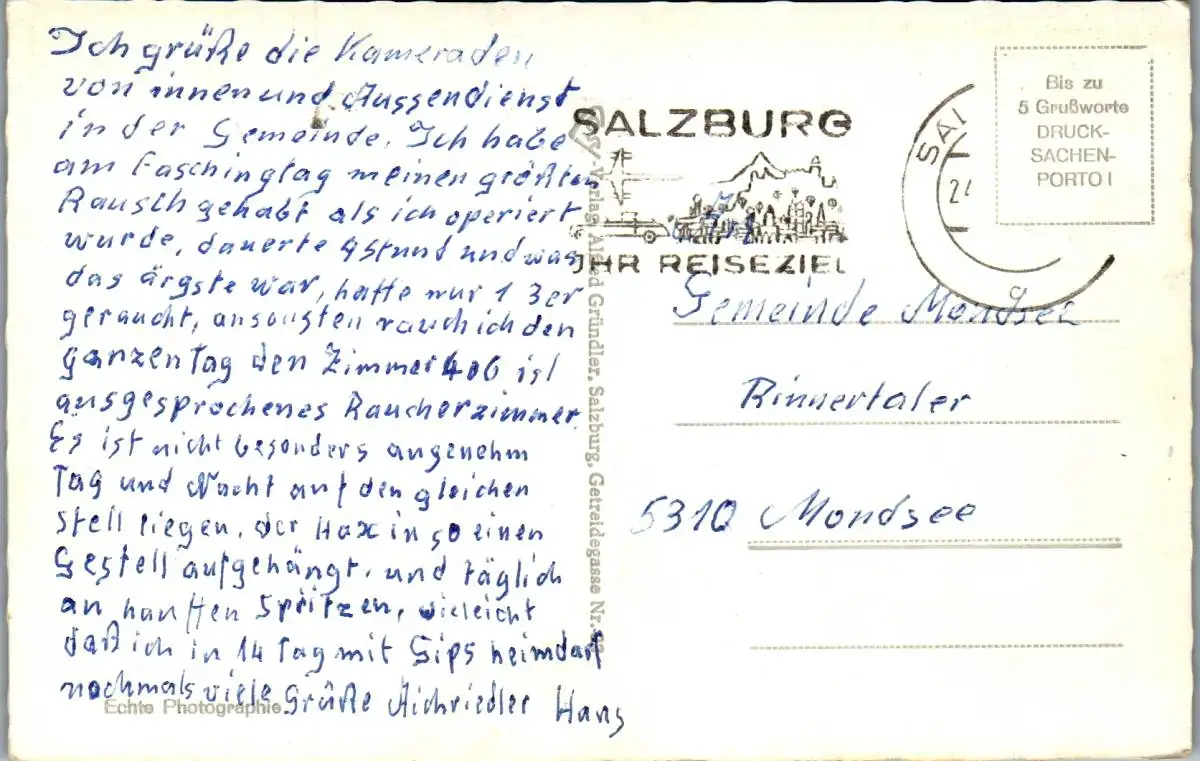 Ich grüße die Kameraden
von innen und Aussendienst
in der Gemeinde. Ich habe
am Faschingtag meinen größten
Rausch gehabt als ich operiert
wurde, dauerte 4 stund und was
das ärgste war, hatte nur 1 3er
geraucht, ansonsten rauch ich den
ganzen Tag den Zimmer 406 ist
ausgesprochenes Raucherzimmer.
Es ist nicht besonders angenehm
Tag und Nacht auf den gleichen
stell liegen, der Hax in so einen
Gestell aufgehängt, und täglich
an hauffen Spritzen, vieleicht
daß ich in 14 Tag mit Gips heimdarf
nochmals viele Grüße Aichriedler Hans
Echte Photographie
-Verlag Alfred Gründler, Salzburg, Getreidegasse Nr.
SALZBURG
IHR REISEZIEL
SAL
2
Bis zu
5 Grußworte
DRUCK-
SACHEN-
PORTO!
Gemeinde Mondsee
Rinnertaler
5310 Mondsee